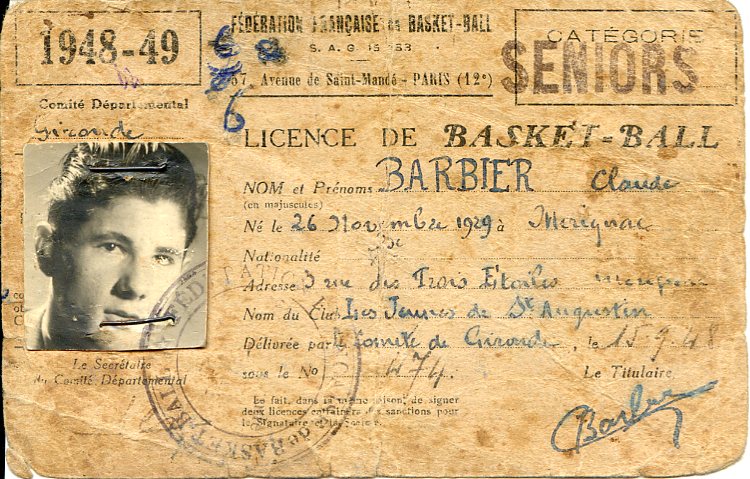 1948-49
FÉDÉRATION FRANÇAISE de BASKET-BALL
S. A. G. 15.353
67, Avenue de Saint-Mandé - PARIS (12e)
CATÉGORIE
SENIORS
Comité Départemental
Gironde
LICENCE DE BASKET-BALL
NOM et Prénoms BARBIER Claude
(en majuscules)
Né le 26 Novembre 1929 à Mérignac
Nationalité
Adresse 3 rue des Trois Etoiles Merignac
Nom du Club Les Jeunes de St Augustin
Délivrée par le Comité de Gironde, le 15-9-48
sous le No 474.
Le Secrétaire
du Comité Départemental
Le Titulaire
Le fait, dans la même saison, de signer
deux licences entraînera des sanctions pour
le Signataire et le
Barbier